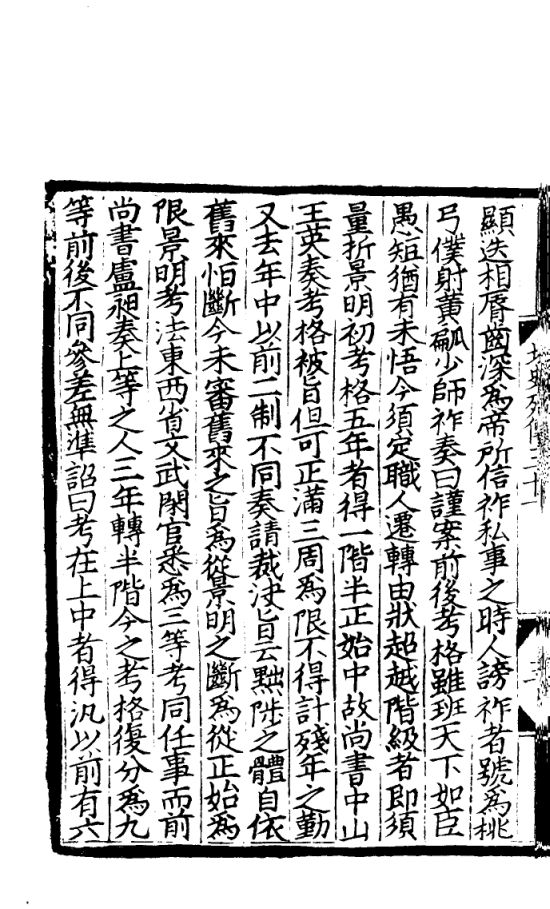 顯迭相脣齒深爲帝所信祚私事之時人謗祚者號爲桃
弓僕射黃㼐少師祚奏曰謹案前後考格雖班天下如臣
愚短猶有未悟今須定職人遷轉由狀超越階級者即須
量折景明初考格五年者得一階半正始中故尚書中山
王英奏考格被旨但可正滿三周爲限不得計殘年之勤
又去年中以前二制不同奏請裁決旨云黜陟之體自依
舊來怕斷今未審舊來之旨爲從景明之斷爲從正始爲
限景明考法東西省文武閑官悉爲三等考同任事而前
尚書盧昶奏上等之人三年轉半階今之考格復分爲九
等前後不同參差無準詔曰考在上中者得汎以前有六